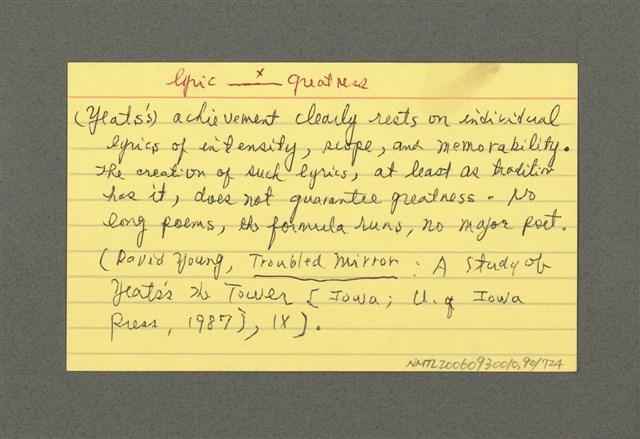 lyric —x— greatness
(Yeats's) achievement clearly rests on individual
lyrics of intensity, scope, and memorability.
The creation of such lyrics, at least as tradition
has it, does not guarantee greatness. No
long poems, the formula runs, no major poet.
(David Young, Troubled Mirror: A Study of
Yeats's The Tower [Iowa; U. of Iowa
Press, 1987], IX).
NMTL20060930010,90/724